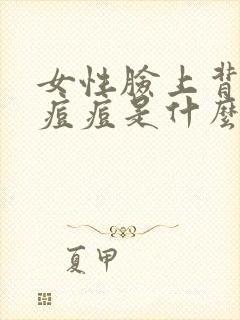 女性臉上背
痘痘是什麼
夏甲